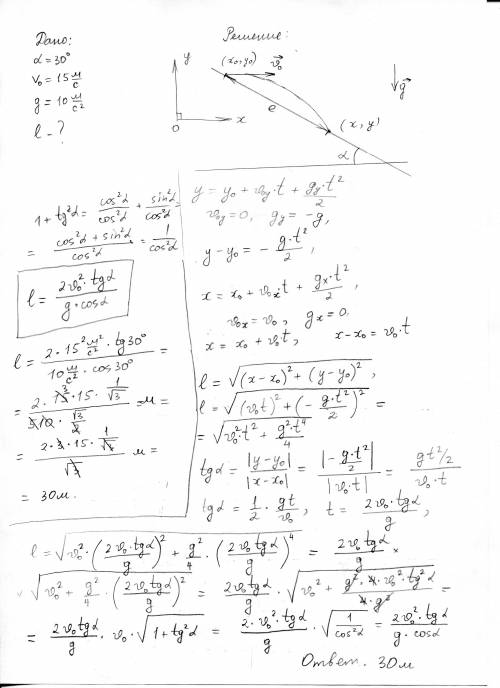 Дано:
α = 30°
v₀ = 15 м/с
g = 10 м/с²
l - ?
Решение:
y
x
0
(x₀, y₀)
v⃗₀
l
(x, y)
α
g⃗
1 + tg²α = cos²α/cos²α + sin²α/cos²α =
= (cos²α + sin²α)/cos²α = 1/cos²α
l = 2v₀²·tgα/(g·cosα)
l = 2·15² м²/с²·tg30°/(10 м/с²·cos30°) =
= 2·15·15·1/√3/(10·√3/2) м =
= 2·3·15·1/√3/√3 м =
= 30 м.
y = y₀ + v₀y·t + gy·t²/2
v₀y = 0, gy = -g,
y - y₀ = - g·t²/2,
x = x₀ + v₀x·t + gx·t²/2,
v₀x = v₀, gx = 0.
x = x₀ + v₀·t, x - x₀ = v₀·t
l = √((x - x₀)² + (y - y₀)²),
l = √((v₀t)² + (- g·t²/2)²) =
= √(v₀²·t² + g²·t⁴/4)
tgα = |y - y₀|/|x - x₀| = |- g·t²/2|/|v₀t| = gt²/2/(v₀·t)
tgα = 1/2 · gt/v₀, t = 2v₀·tgα/g,
l = √(v₀²·(2v₀·tgα/g)² + g²/4·(2v₀tgα/g)⁴) = 2v₀tgα/g ×
× √(v₀² + g²/4·(2v₀tgα/g)²) = 2v₀tgα/g · √(v₀² + g²·4·v₀²·tg²α/(4·g²)) =
= 2v₀tgα/g · v₀·√(1 + tg²α) = 2·v₀²·tgα/g · √(1/cos²α) = 2v₀²·tgα/(g·cosα)
Ответ. 30 м